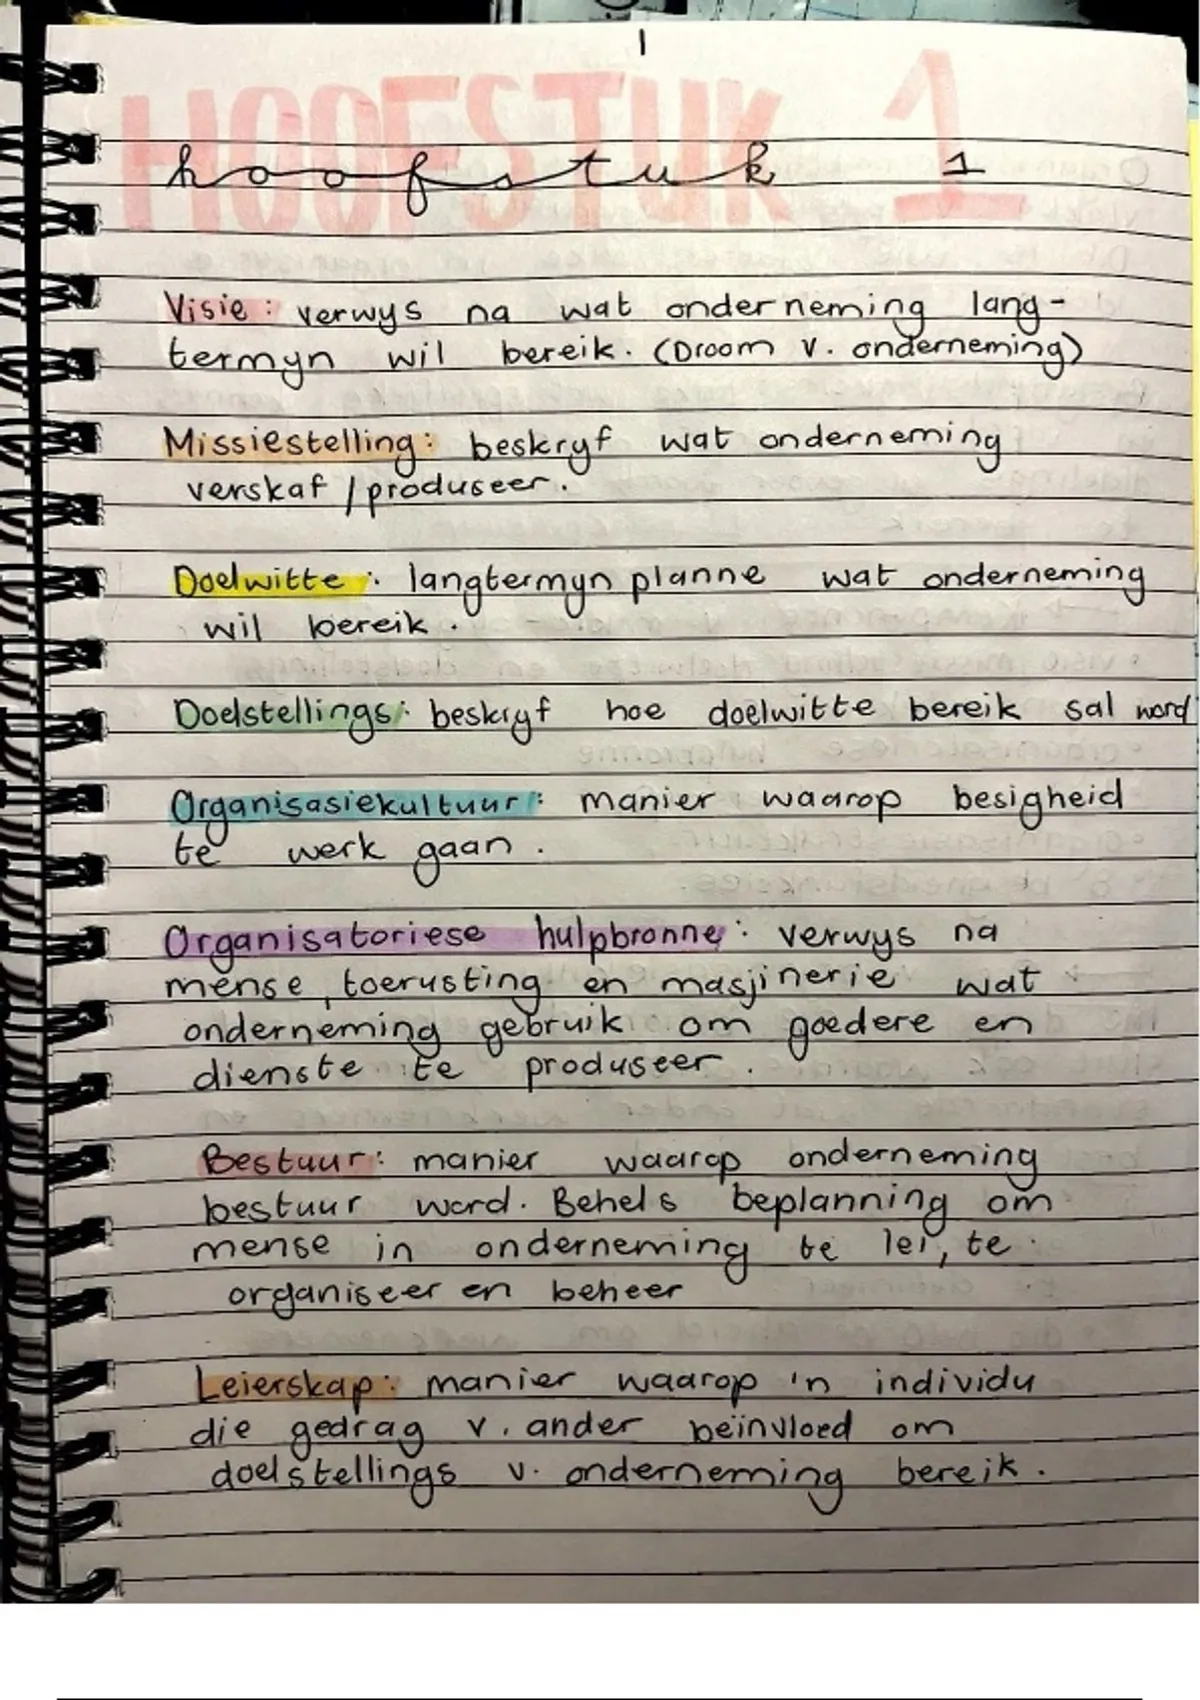 1
HOOFSTUK 1
hoofstuk 1
Visie : verwys na wat onderneming lang-
termyn wil bereik. (Droom v. onderneming)
Missiestelling : beskryf wat onderneming
verskaf / produseer.
Doelwitte : langtermyn planne wat onderneming
wil bereik.
Doelstellings : beskryf hoe doelwitte bereik sal word
Organisasiekultuur : manier waarop besigheid
te werk gaan.
Organisatoriese hulpbronne : verwys na
mense, toerusting en masjinerie wat
onderneming gebruik om goedere en
dienste te produseer.
Bestuur : manier waarop onderneming
bestuur word. Behels beplanning om
mense in onderneming te lei, te
organiseer en beheer
Leierskap : manier waarop 'n individu
die gedrag v. ander beïnvloed om
doelstellings v. onderneming bereik.